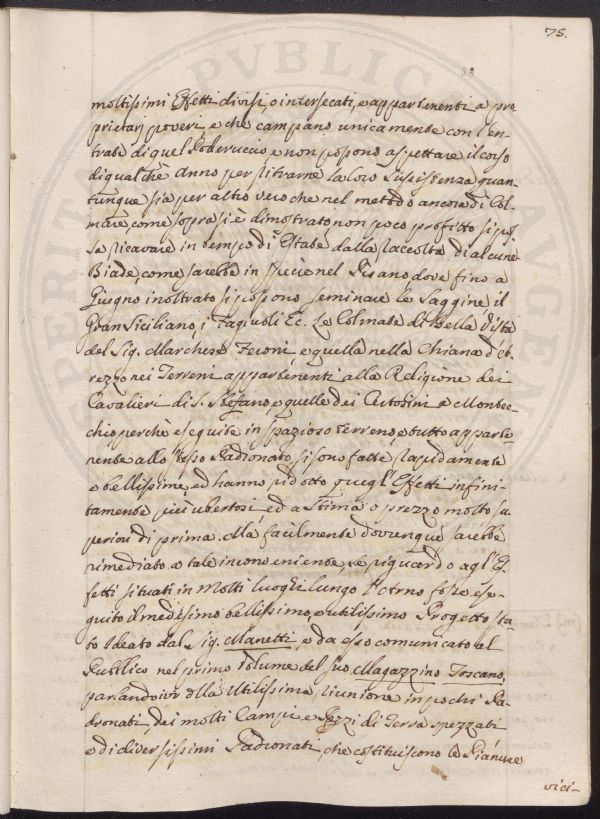 75.
moltissimi Effetti divisi, o intersecati, e appartenenti a pro
prietarj poveri, e che campano unicamente con l'en-
trate di quel Poderuccio e non possono aspettare il corso
di qualche Anno per ritrarne la loro sussistenza quan-
tunque sia per altro vero che nel metodo ancora di Col-
mare, come sopra si è dimostrato, non poco profitto si pos-
sa ricavare in tempo di Estate dalla raccolta di alcune
Biade, come sarebbe in specie nel Pisano, dove fino a
Giugno inoltrato si possono seminare le Saggine, il
Gran Siciliano, i Fagiuoli Ec. Le Colmate di Bella Vista
del Sig. Marchese Feroni, e quella nella Chiana d'A-
rezzo nei Terreni appartenenti alla Religione dei
Cavalieri di S. Stefano, e quelle dei Cortosini a Montec-
chio perchè eseguite in spazioso terreno, e tutto apparte-
nente allo stesso Padronato, si sono fatte rapidamente
e bellissime, ed hanno ridotto quegl'Effetti infini-
tamente più ubertosi, ed a stima o prezzo molto su
periori di prima. Ma facilmente dovunque sarebbe
rimediato a tale inconveniente, se riguardo agl'Ef-
fetti situati in molti luoghi lungo l'Arno fosse ese-
guito il medesimo bellissimo, e utilissimo Progetto sta-
to ideato dal Sig. Manetti, e da esso comunicato al
Pubblico nel primo Volume del suo Magazzino Toscano,
parlandovi della Utilissima riunione in pochi Pa-
dronati, dei molti Campi, e Pezzi di Terra spezzati
e di diversissimi Padronati, che costituiscono le Pianure
vici-